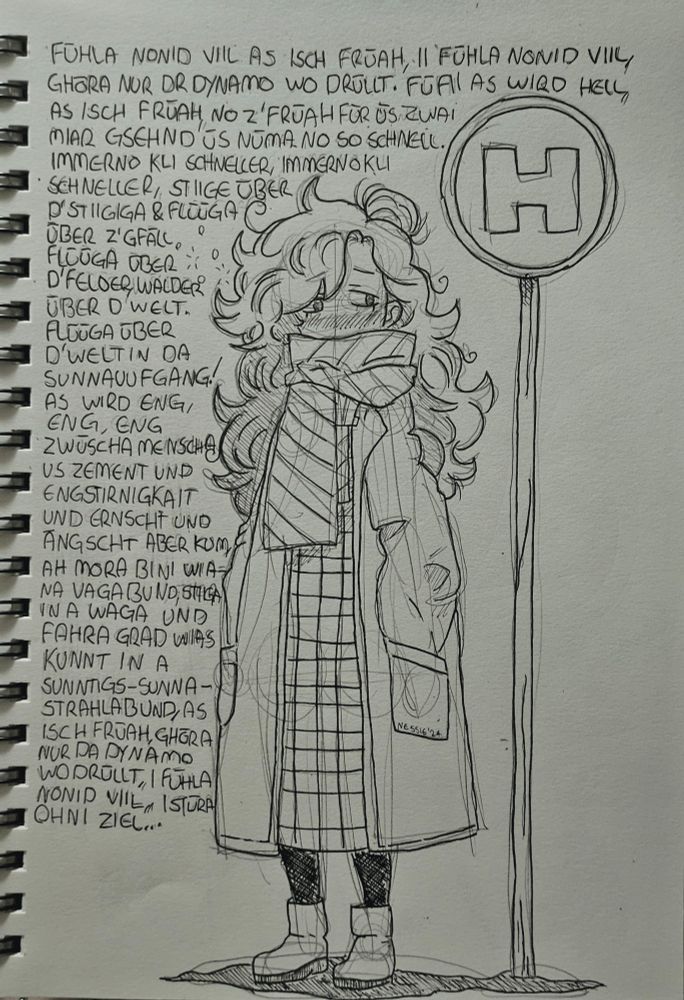 FÜHLA NONID VIIL AS ISCH FRÜAH, II FÜHLA NONID VIIL,
GHÖRA NUR DR DYNAMO WO DRÜLLT. FÜFII AS WIRD HELL,
AS ISCH FRÜAH, NO Z'FRÜAH FÜR ÜS ZWAI
MIAR GSEHND ÜS NÜMA. NO SO SCHNELL.
IMMERNO KLI SCHNELLER, IMMERNO KLI
SCHNELLER, STIIGE ÜBER
D'STIIGIGA & FLÜÜGA
ÜBER Z'GFÄLL,
FLÜÜGA ÜBER
D'FELDER, WÄLDER
ÜBER D'WELT.
FLÜÜGA ÜBER
D'WELT IN DA
SUNNAUUFGANG!
AS WIRD ENG,
ENG, ENG
ZWÜSCHA MENSCHA
US ZEMENT UND
ENGSTIRNIGKAIT
UND ERNSCHT UND
ÄNGSCHT ABER KUM,
AH MORA BINI WIA-
NA VAGABUND, STIIGA
IN A WAGA UND
FAHRA GRAD WIAS
KUNNT IN A
SUNNTIGS-SUNNA-
STRAHLABUND, AS
ISCH FRÜAH, GHÖRA
NUR DA DYNAMO
WO DRÜLLT, I FÜHLA
NONID VIIL, I STÜRA
OHNI ZIEL...
H
NESSIE '24